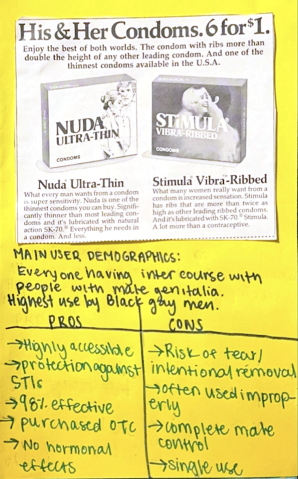 His & Her Condoms. 6 for $1.
Enjoy the best of both worlds. The condom with ribs more than
double the height of any other leading condom. And one of the
thinnest condoms available in the U.S.A.
NUDA
ULTRA-THIN
CONDOMS
STIMULA
VIBRA-RIBBED
CONDOMS
Nuda Ultra-Thin
What every man wants from a condom
is super sensitivity. Nuda is one of the
thinnest condoms you can buy. Signifi-
cantly thinner than most leading con-
doms and it's lubricated with natural
action SK-70.® Everything he needs in
a condom. And less.
Stimula Vibra-Ribbed
What many women really want from a
condom is increased sensation. Stimula
has ribs that are more than twice as
high as other leading ribbed condoms.
And it's lubricated with SK-70.® Stimula.
A lot more than a contraceptive.
MAIN USER DEMOGRAPHICS:
Everyone having inter course with
people with male genitalia.
Highest use by Black gay men.
PROS
→Highly accessible
→protection against
STIs
→98% effective
→purchased OTC
→No hormonal
effects
CONS
→Risk of tear/
intentional removal
→often used improp-
erly
→complete male
control
→single use